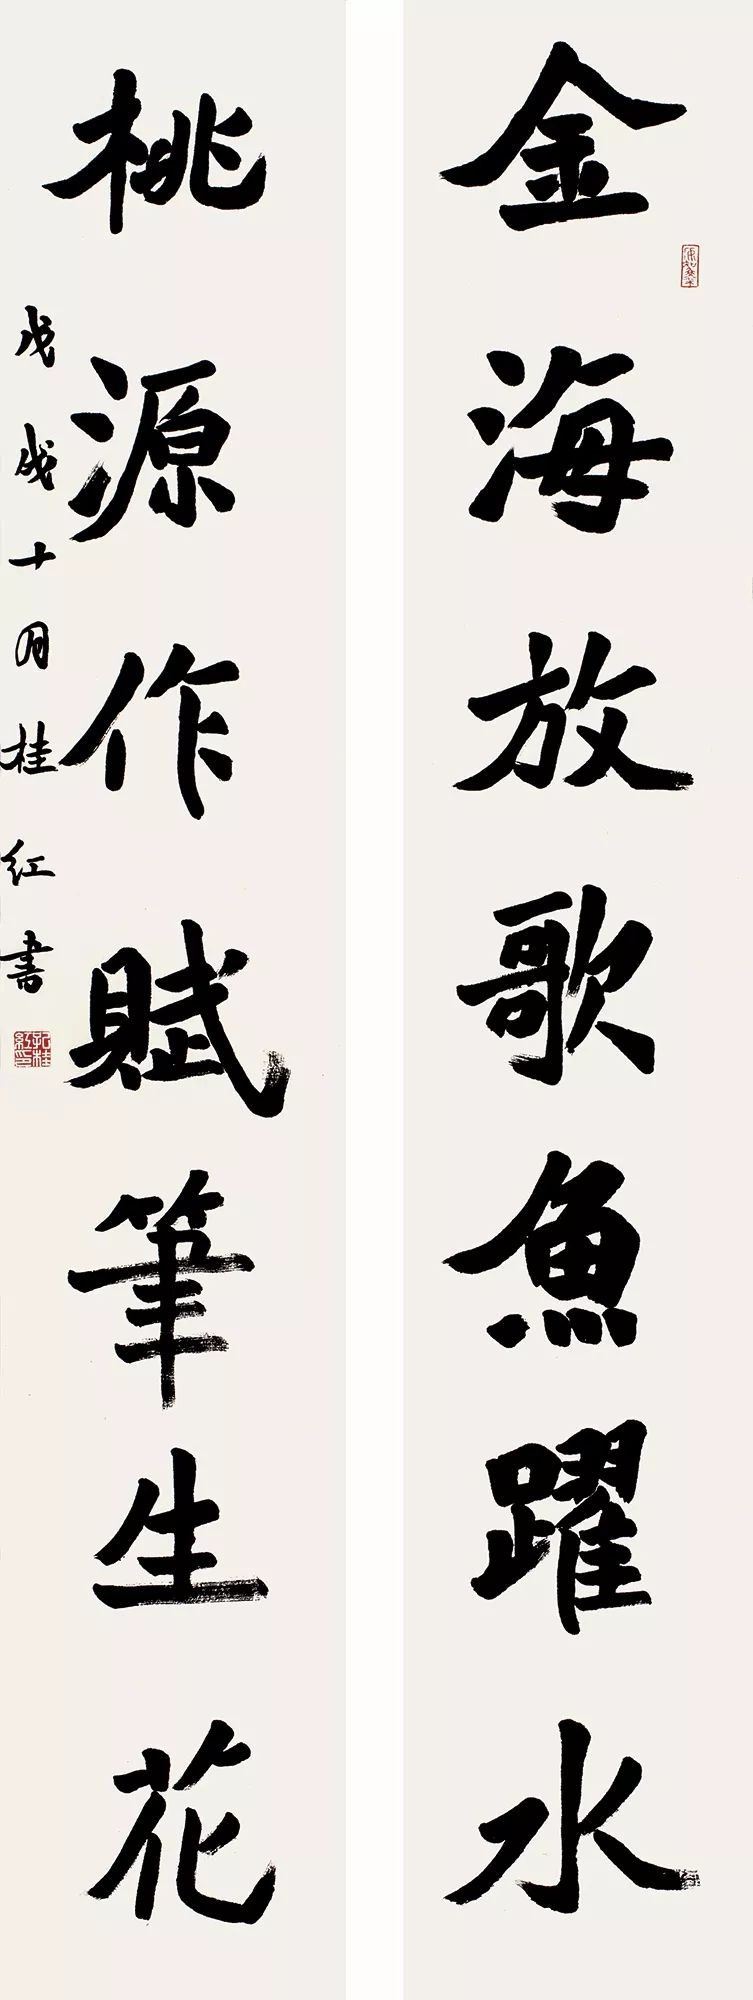 金海放歌魚躍水
桃源作賦筆生花
戊戌十月桂红書